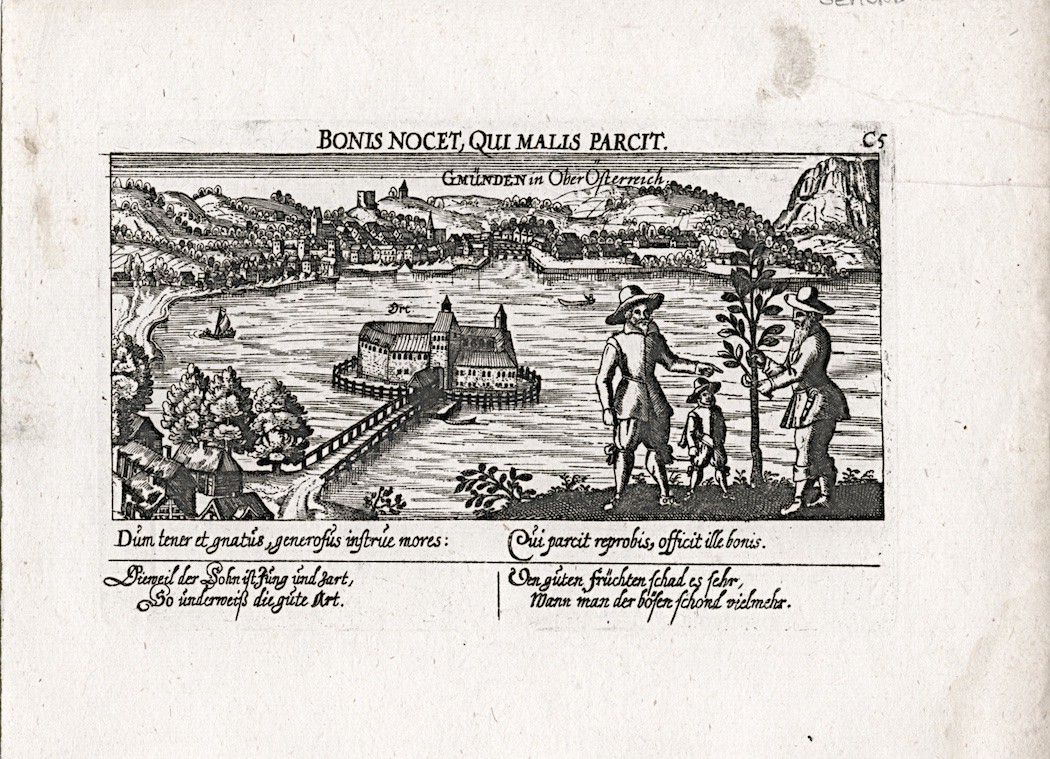 GEMUND
BONIS NOCET, QUI MALIS PARCIT.
C5
GMÜNDEN in Ober Österreich.
Ort
Dům tener et gnatůs, generosůs instrůe mores:
Qui parcit reprobis, officit ille bonis.
Dieweil der Sohn ist Jůng ůnd zart,
So ůnderweiß die gůte Art.
Den gůten früchten schad es sehr,
Wann man der bösen schond vielmehr.